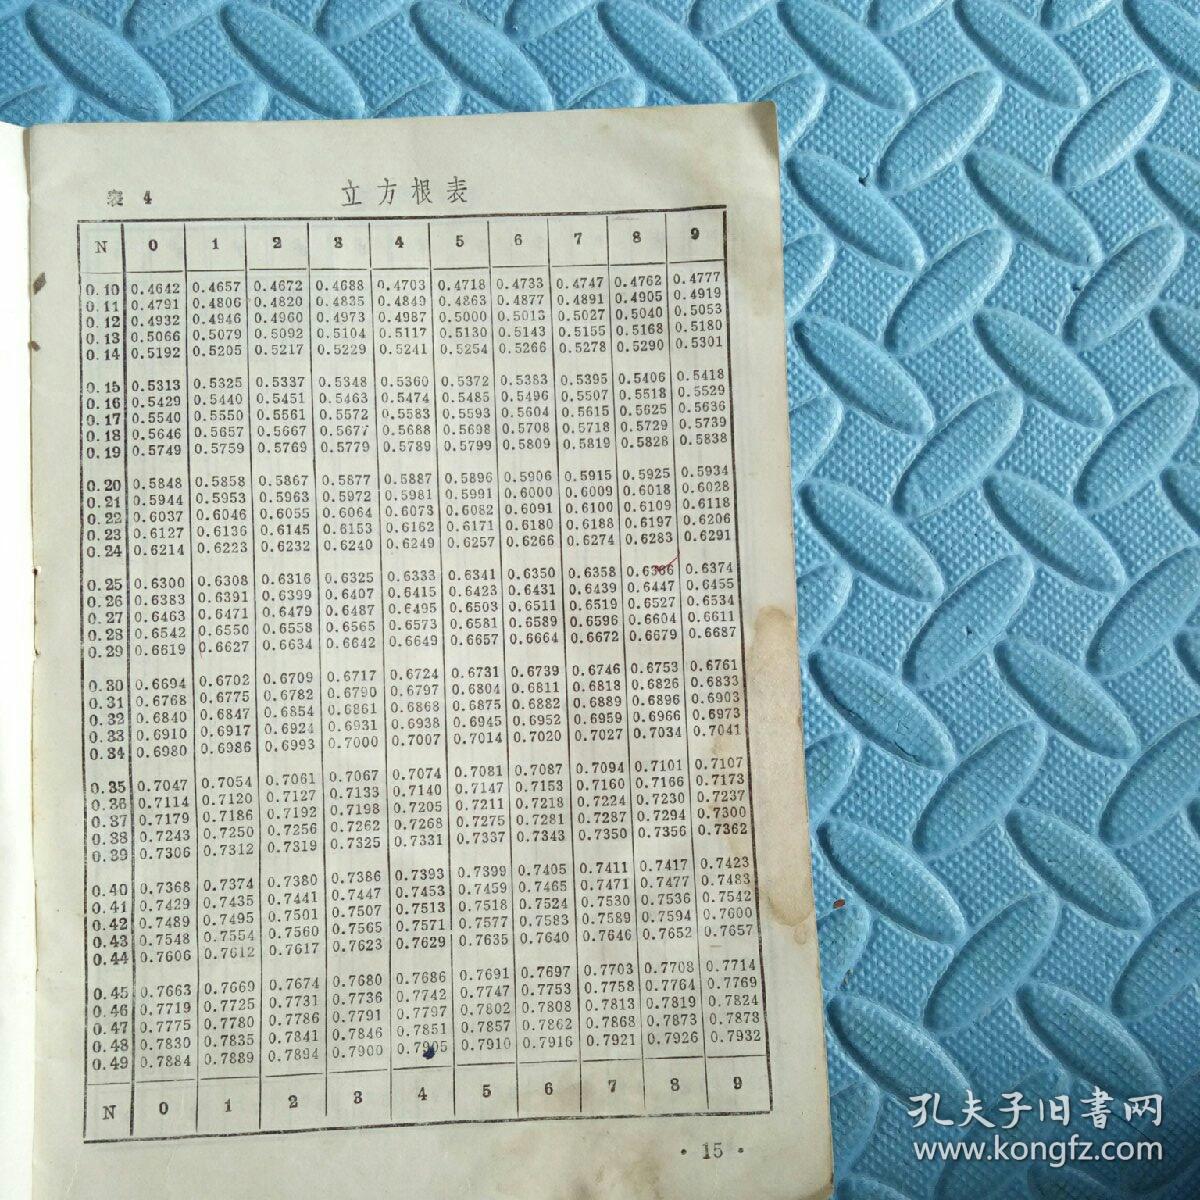 表 4 立方根表
N 0 1 2 3 4 5 6 7 8 9
0.10 0.4642 0.4657 0.4672 0.4688 0.4703 0.4718 0.4733 0.4747 0.4762 0.4777
0.11 0.4791 0.4806 0.4820 0.4835 0.4849 0.4863 0.4877 0.4891 0.4905 0.4919
0.12 0.4932 0.4946 0.4960 0.4973 0.4987 0.5000 0.5013 0.5027 0.5040 0.5053
0.13 0.5066 0.5079 0.5092 0.5104 0.5117 0.5130 0.5143 0.5155 0.5168 0.5180
0.14 0.5192 0.5205 0.5217 0.5229 0.5241 0.5254 0.5266 0.5278 0.5290 0.5301
0.15 0.5313 0.5325 0.5337 0.5348 0.5360 0.5372 0.5383 0.5395 0.5406 0.5418
0.16 0.5429 0.5440 0.5451 0.5463 0.5474 0.5485 0.5496 0.5507 0.5518 0.5529
0.17 0.5540 0.5550 0.5561 0.5572 0.5583 0.5593 0.5604 0.5615 0.5625 0.5636
0.18 0.5646 0.5657 0.5667 0.5677 0.5688 0.5698 0.5708 0.5718 0.5729 0.5739
0.19 0.5749 0.5759 0.5769 0.5779 0.5789 0.5799 0.5809 0.5819 0.5828 0.5838
0.20 0.5848 0.5858 0.5867 0.5877 0.5887 0.5896 0.5906 0.5915 0.5925 0.5934
0.21 0.5944 0.5953 0.5963 0.5972 0.5981 0.5991 0.6000 0.6009 0.6018 0.6028
0.22 0.6037 0.6046 0.6055 0.6064 0.6073 0.6082 0.6091 0.6100 0.6109 0.6118
0.23 0.6127 0.6136 0.6145 0.6153 0.6162 0.6171 0.6180 0.6188 0.6197 0.6206
0.24 0.6214 0.6223 0.6232 0.6240 0.6249 0.6257 0.6266 0.6274 0.6283 0.6291
0.25 0.6300 0.6308 0.6316 0.6325 0.6333 0.6341 0.6350 0.6358 0.6366 0.6374
0.26 0.6383 0.6391 0.6399 0.6407 0.6415 0.6423 0.6431 0.6439 0.6447 0.6455
0.27 0.6463 0.6471 0.6479 0.6487 0.6495 0.6503 0.6511 0.6519 0.6527 0.6534
0.28 0.6542 0.6550 0.6558 0.6565 0.6573 0.6581 0.6589 0.6596 0.6604 0.6611
0.29 0.6619 0.6627 0.6634 0.6642 0.6649 0.6657 0.6664 0.6672 0.6679 0.6687
0.30 0.6694 0.6702 0.6709 0.6717 0.6724 0.6731 0.6739 0.6746 0.6753 0.6761
0.31 0.6768 0.6775 0.6782 0.6790 0.6797 0.6804 0.6811 0.6818 0.6826 0.6833
0.32 0.6840 0.6847 0.6854 0.6861 0.6868 0.6875 0.6882 0.6889 0.6896 0.6903
0.33 0.6910 0.6917 0.6924 0.6931 0.6938 0.6945 0.6952 0.6959 0.6966 0.6973
0.34 0.6980 0.6986 0.6993 0.7000 0.7007 0.7014 0.7020 0.7027 0.7034 0.7041
0.35 0.7047 0.7054 0.7061 0.7067 0.7074 0.7081 0.7087 0.7094 0.7101 0.7107
0.36 0.7114 0.7120 0.7127 0.7133 0.7140 0.7147 0.7153 0.7160 0.7166 0.7173
0.37 0.7179 0.7186 0.7192 0.7198 0.7205 0.7211 0.7218 0.7224 0.7230 0.7237
0.38 0.7243 0.7250 0.7256 0.7262 0.7268 0.7275 0.7281 0.7287 0.7294 0.7300
0.39 0.7306 0.7312 0.7319 0.7325 0.7331 0.7337 0.7343 0.7350 0.7356 0.7362
0.40 0.7368 0.7374 0.7380 0.7386 0.7393 0.7399 0.7405 0.7411 0.7417 0.7423
0.41 0.7429 0.7435 0.7441 0.7447 0.7453 0.7459 0.7465 0.7471 0.7477 0.7483
0.42 0.7489 0.7495 0.7501 0.7507 0.7513 0.7518 0.7524 0.7530 0.7536 0.7542
0.43 0.7548 0.7554 0.7560 0.7565 0.7571 0.7577 0.7583 0.7589 0.7594 0.7600
0.44 0.7606 0.7612 0.7617 0.7623 0.7629 0.7635 0.7640 0.7646 0.7652 0.7657
0.45 0.7663 0.7669 0.7674 0.7680 0.7686 0.7691 0.7697 0.7703 0.7708 0.7714
0.46 0.7719 0.7725 0.7731 0.7736 0.7742 0.7747 0.7753 0.7758 0.7764 0.7769
0.47 0.7775 0.7780 0.7786 0.7791 0.7797 0.7802 0.7808 0.7813 0.7819 0.7824
0.48 0.7830 0.7835 0.7841 0.7846 0.7851 0.7857 0.7862 0.7868 0.7873 0.7873
0.49 0.7884 0.7889 0.7894 0.7900 0.7905 0.7910 0.7916 0.7921 0.7926 0.7932
N 0 1 2 3 4 5 6 7 8 9
· 15 ·
孔夫子旧書网
www.kongfz.com